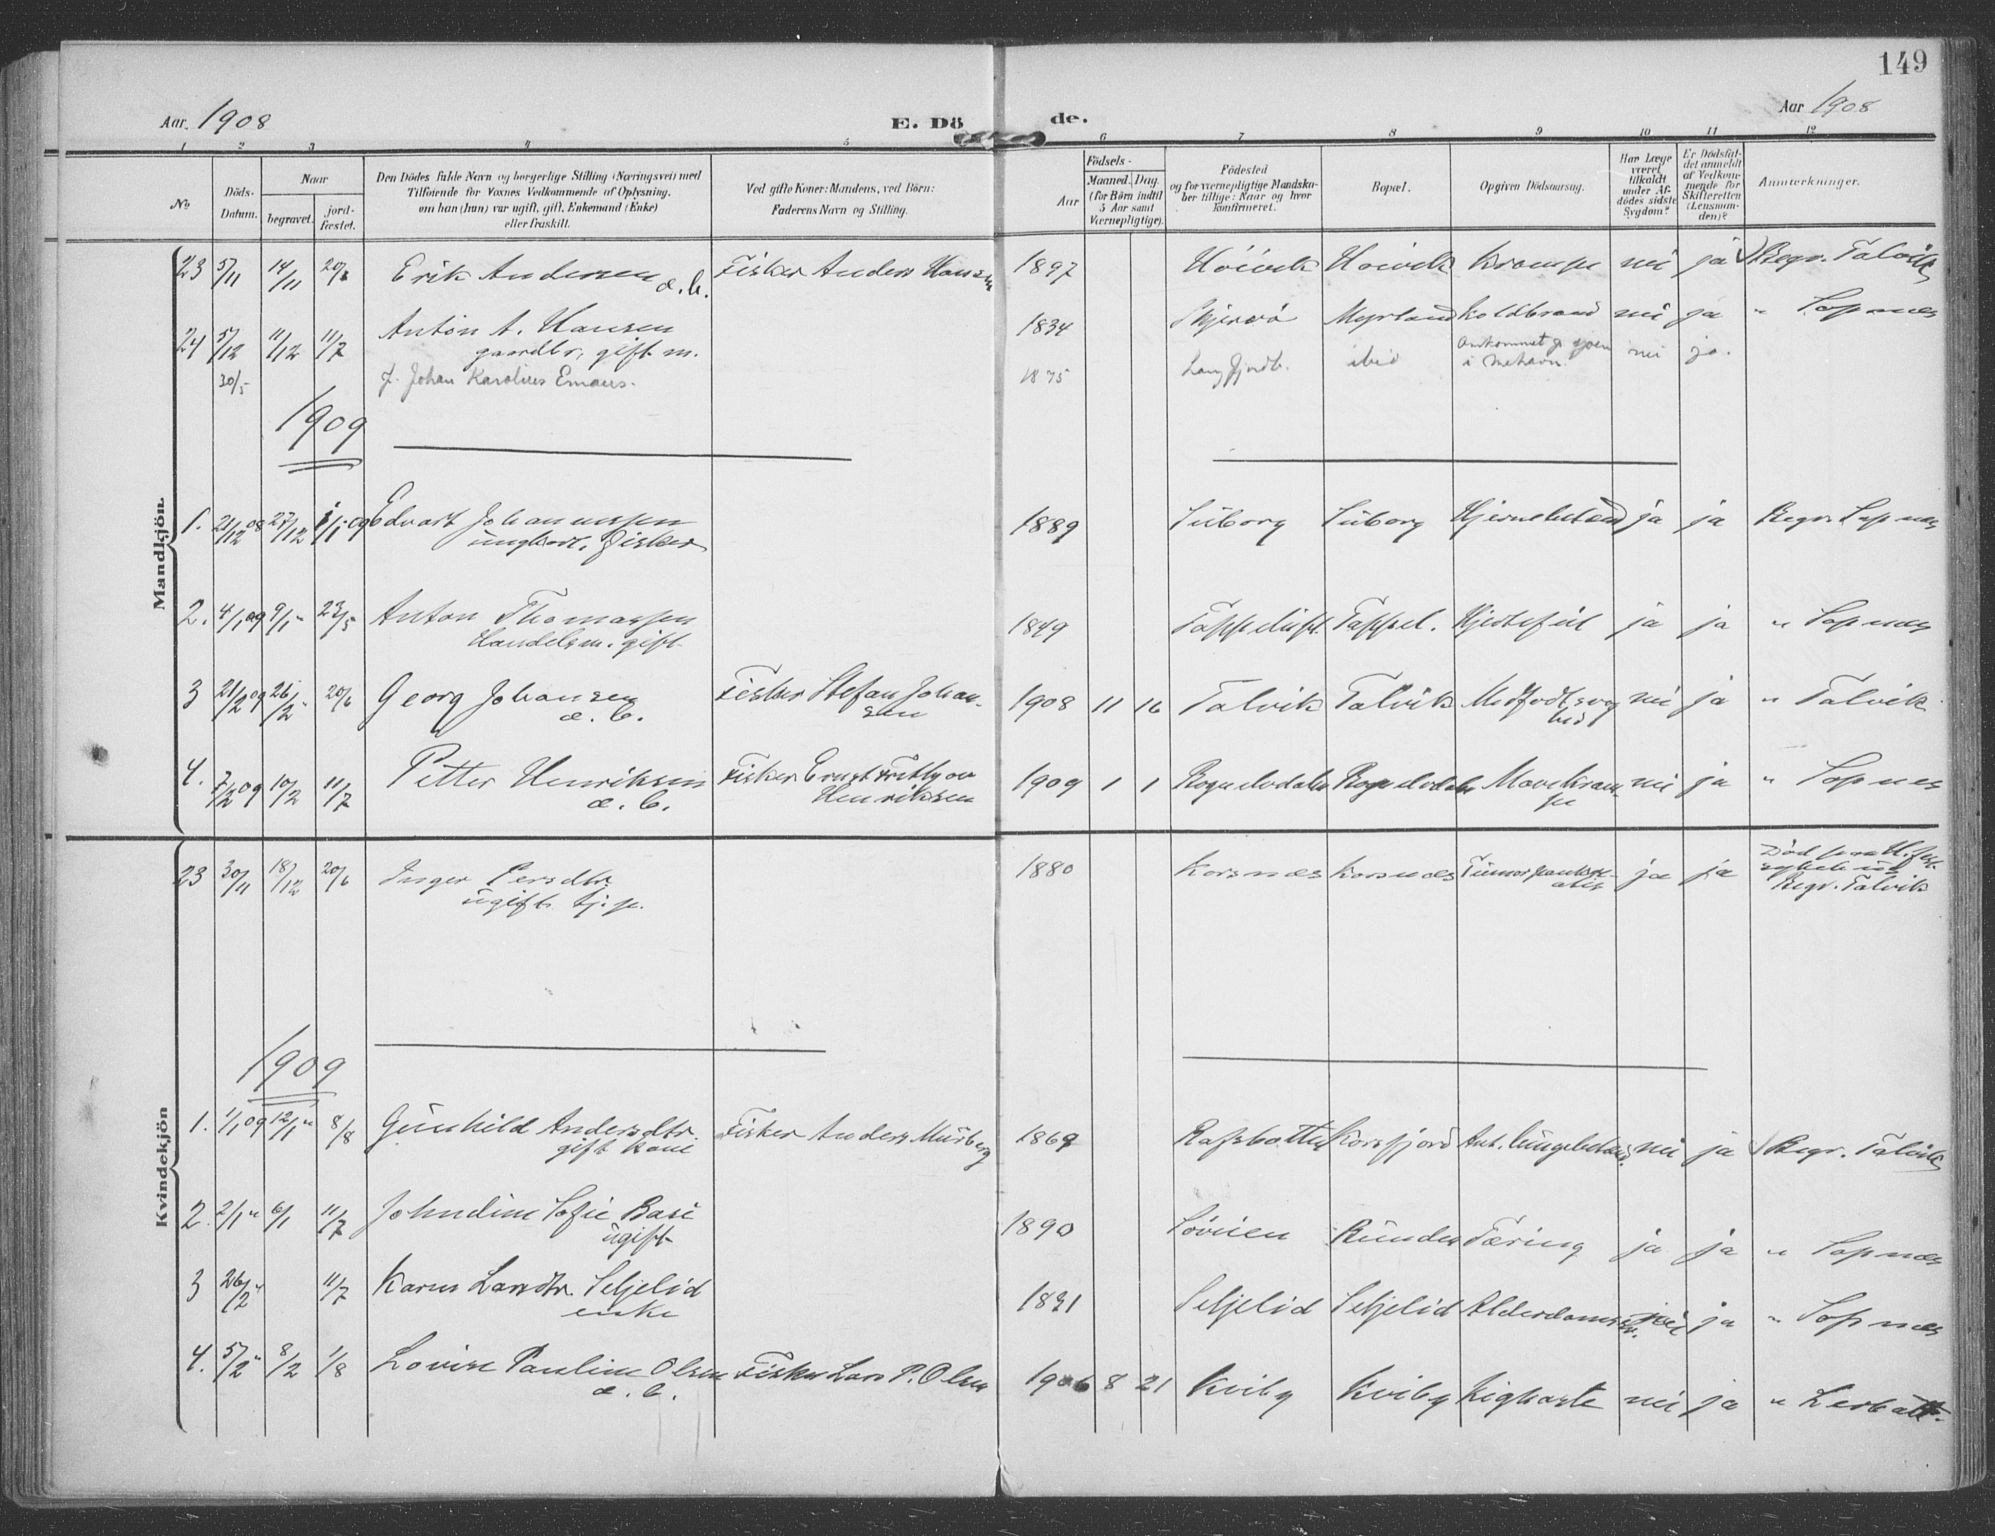 149
Aar. 1908
E. Dö
de.
Aar 1908
1 2 3 4 5 6 7 8 9 10 11 12
No
Döds-
Datum.
Naar
begravet.
jord-
fæstet.
Den Dödes fulde Navn og borgerlige Stilling (Næringsvei) med
Tilföiende for Voxnes Vedkommende af Oplysning,
om han (hun) var ugift, gift, Enkemand (Enke)
eller fraskilt.
Ved gifte Koner: Mandens, ved Börn:
Faderens Navn og Stilling.
Födsels-
Aar
Maaned. Dag
(for Börn indtil
5 Aar samt
Værnepligtige).
Födested
og for værnepligtige Mandska-
ber tillige: Naar og hvor
konfirmeret.
Bopæl.
Opgiven Dödsaarsag.
Har Læge
været
tilkaldt
under Af-
dödes sidste
Sygdom?
Er Dödsfal-
det anmeldt
af Vedkom-
mende for
Skifteretten
(Lensman-
den)?
Anmærkninger.
Mandkjön.
23 5/11 14/11 20/6 Erik Andersen Fisker Anders Hansen 1897 Höivik Höivik Krampe nei ja Begr. Talvik
æ. b.
24 5/12 11/12 11/7 Anton A. Hansen 1834 Skjervö Myrland Koldbrand nei ja " Sopnes
gaardbr, gift m.
30/5 f. Johan Karolius Emaus. 1875 Langfjordb. ibid omkommet p. sjøen nei ja.
i Mehavn.
1909
1. 21/12 08 27/12 1/1-09 Edvart Johannessen 1889 Süborg Süborg Hjernebetænd ja ja Begr. Sopnes
ungkarl. Fisker
2. 4/1 09 9/1 " 23/5 Anton Thomassen 1849 Tappeluft Tappel. Hjertefeil ja ja " Sopnes
Handelsm. gift
3 21/2 09 26/2 " 20/6 Georg Johansen Fisker Stefan Johan- 1908 11 16 Talvik Talvik Medfödt svag nei ja " Talvik
æ. b. sen hed
4. 7/2 09 10/2 11/7 Petter Henriksen Fisker Ernst Frithjov 1909 1 1 Rognelvdalen Rognelvdalen Mavekram- nei ja " Sopnes
æ. b. Henriksen pe
Kvindekjön
23 30/11 18/12 20/6 Inger Persdtr. 1880 Korsnes Korsnæs ja ja
ugift tj. p. Begr. Talvik
1909
1. 1/1 09 12/1 " 8/8 Gunhild Andersdtr. Fisker Anders Murberg 1869 Rafsbotten Korsfjord Ant. lungebetænd. nei ja Begr. Talvik
gift Kone
2. 2/1 " 6/1 11/7 Johndine Sofie Basi 1890 Tæring ja ja " Sopnes
ugift
3 26/2 " 11/7 Karen Larsdtr. Seljelid 1821 Seljelid Seljelid nei ja " Sopnes
enke
4. 5/2 " 8/2 1/8 Lovise Pauline Olsen Fisker Lars P. Olsen 1906 8 21 Kviby Kviby Kighoste nei ja " Lerbatt.
æ. b.